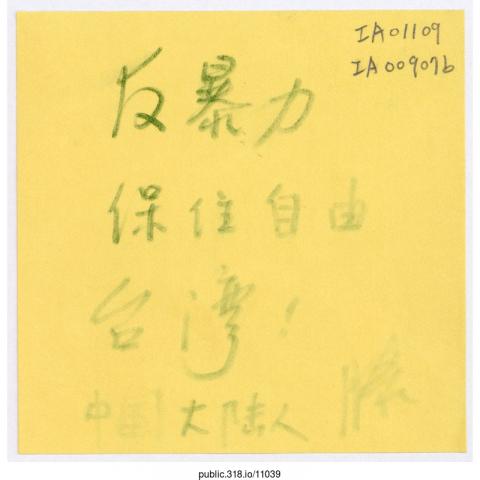 IA01109
IA00907b
反暴力
保住自由
台湾!
中国大陆人
public.318.io/11039